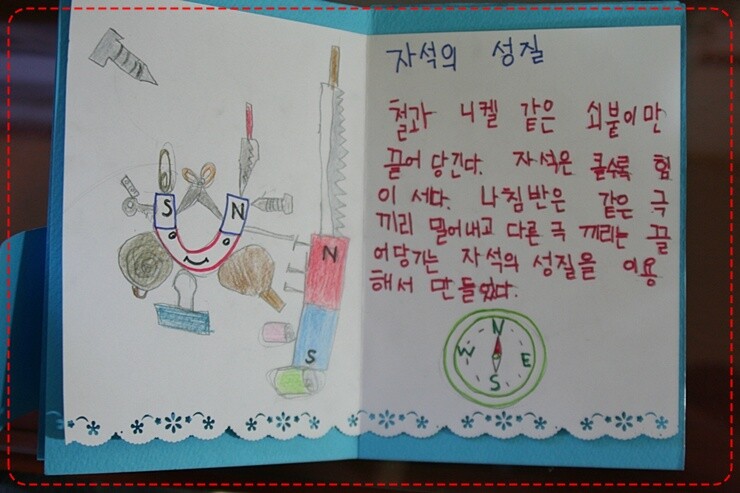 자석의 성질
철과 니켈 같은 쇠붙이만
끌어 당긴다. 자석은 클수록 힘
이 세다. 나침반은 같은 극
끼리 밀어내고 다른 극 끼리는 끌
어당기는 자석의 성질을 이용
해서 만들었다.
S N
N
S
N
W E
S